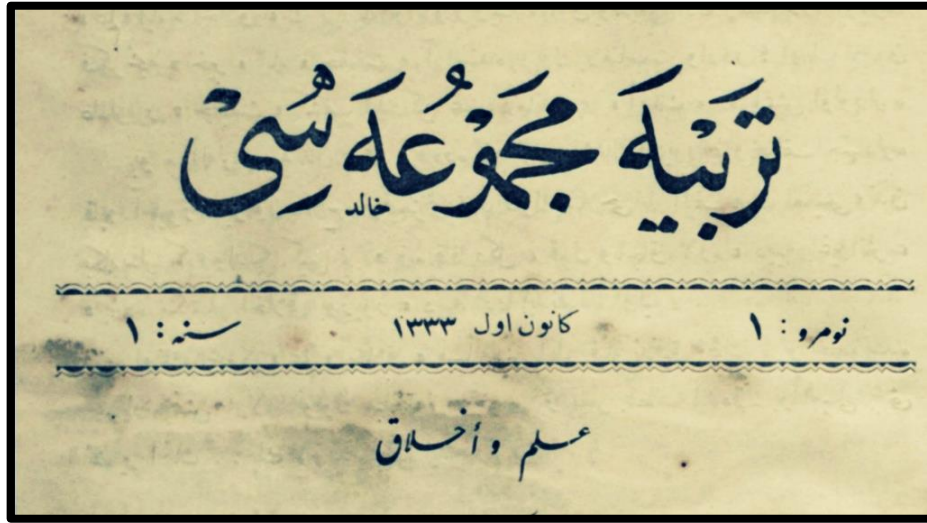 تَربيَه مجموعه سُی
خالد
نومرو : ١ كانون اول ١٣٣٣ سنه : ١
علم و أخلاق